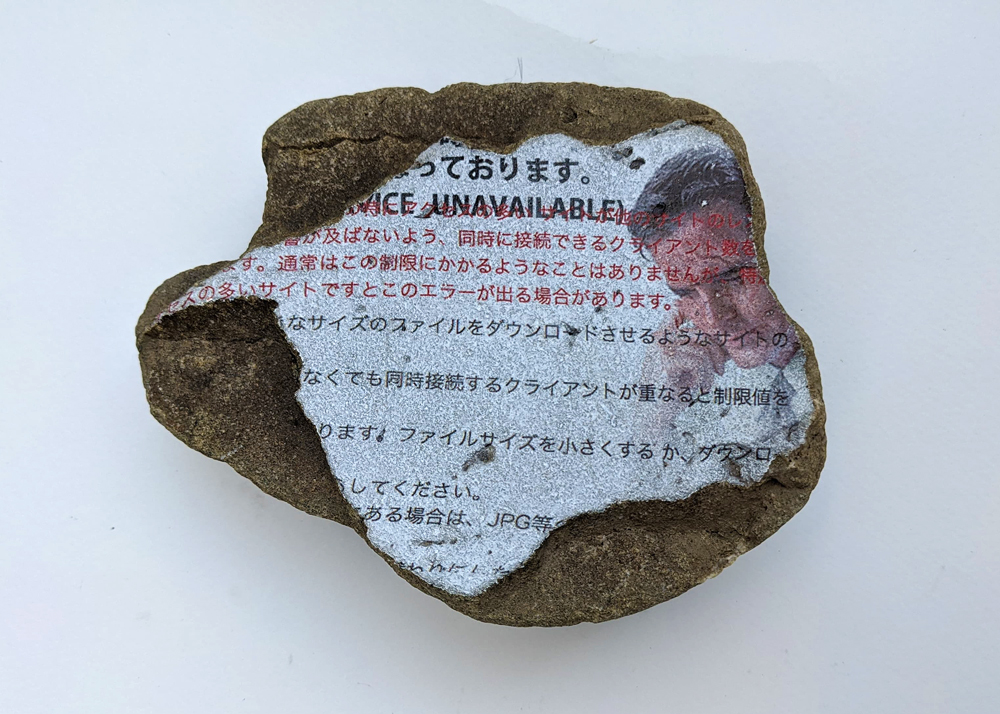 っております。
VICE_UNAVAILABLE)
特にアクセスの多いサイトが他のサイトのレ
響が及ばないよう、同時に接続できるクライアント数を
ます。通常はこの制限にかかるようなことはありませんが、特
人の多いサイトですとこのエラーが出る場合があります。
なサイズのファイルをダウンロードさせるようなサイトの
なくても同時接続するクライアントが重なると制限値を
ります。ファイルサイズを小さくする か、ダウンロー
してください。
ある場合は、JPG等